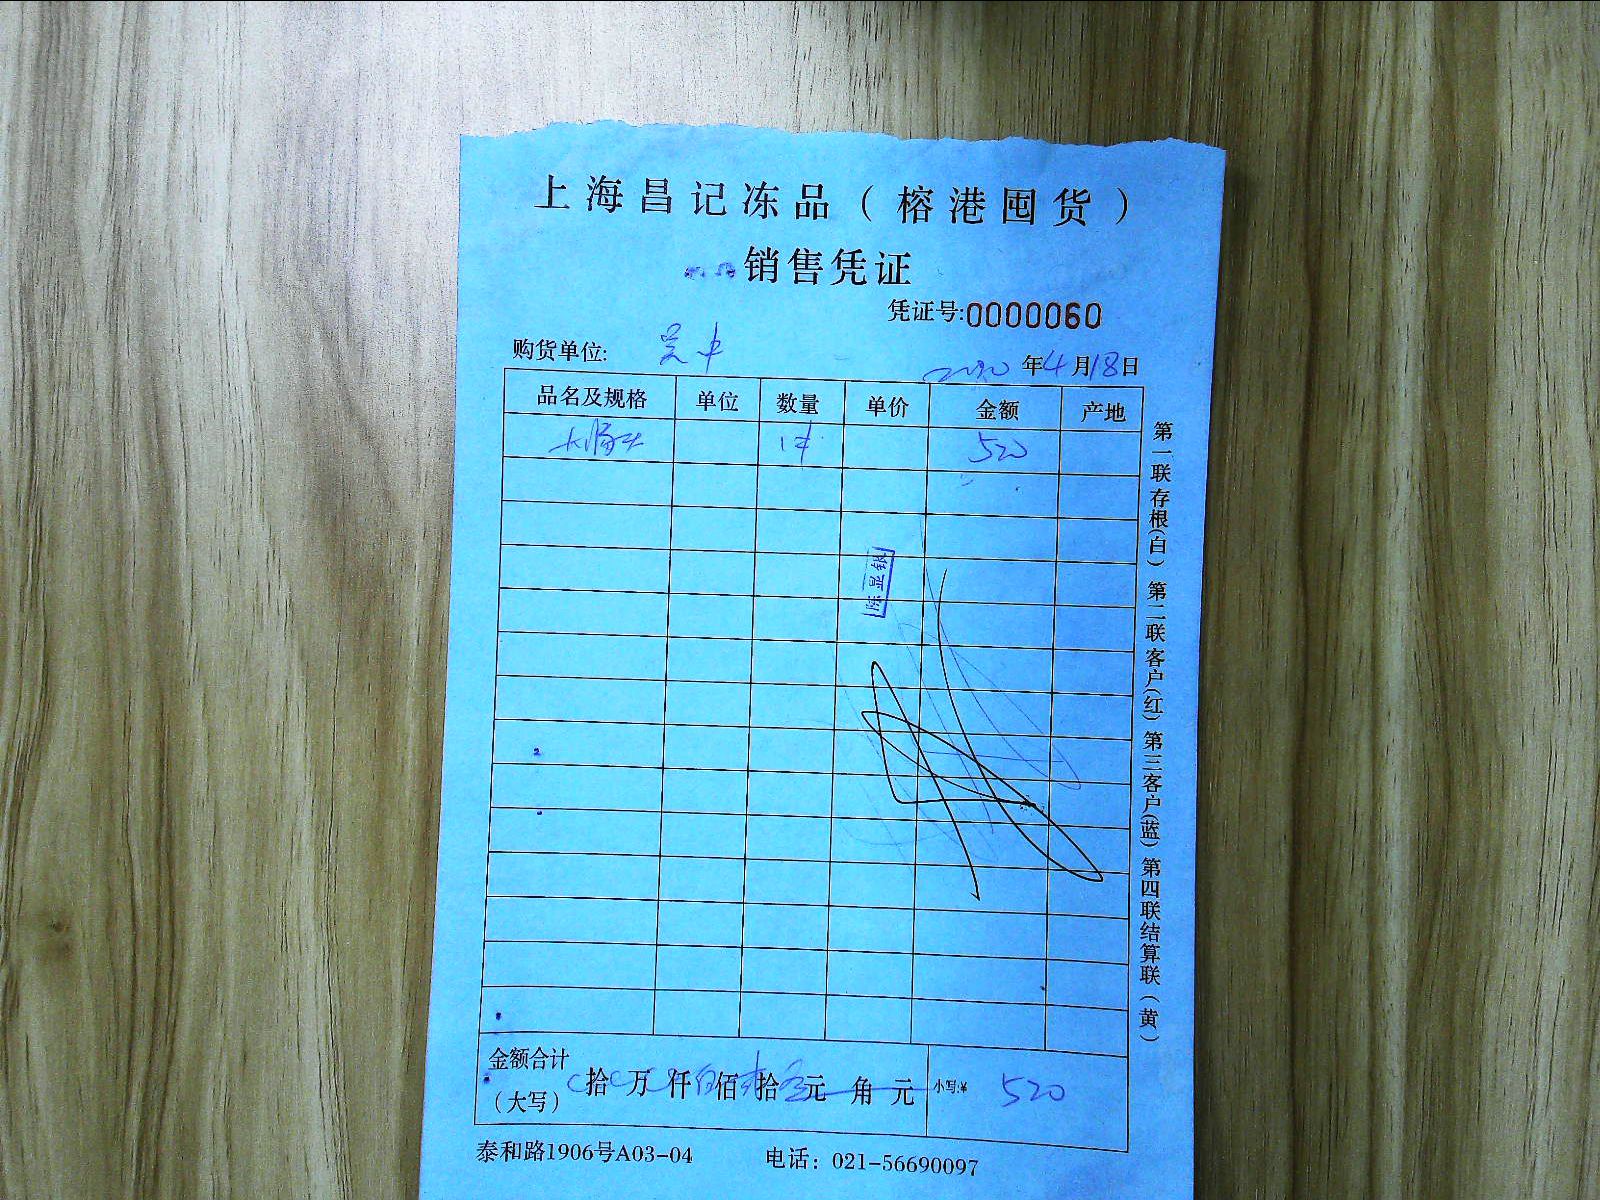 上海昌记冻品（榕港囤货）
销售凭证
凭证号:0000060
购货单位: 吴中
2020年4月18日
品名及规格 单位 数量 单价 金额 产地
大肠头 1件 520
陈显银
金额合计（大写） 拾 万 仟 伍佰 贰拾 零元 角 元 小写:¥ 520
泰和路1906号A03-04 电话：021-56690097
第一联存根(白) 第二联客户(红) 第三客户(蓝) 第四联结算联(黄)